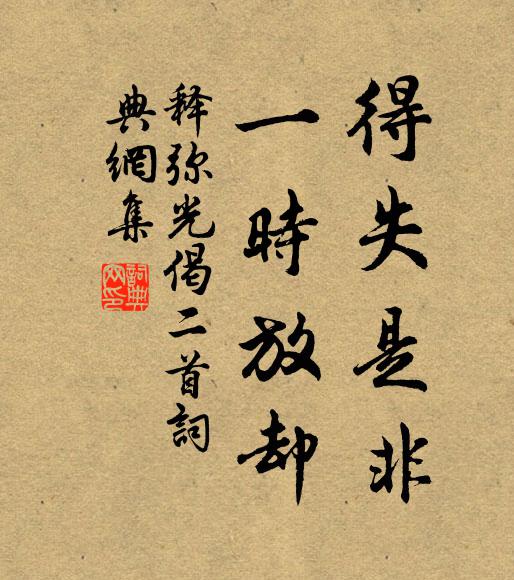 得失是非
一時放却
释弥光偈二首詞
典網集
詞典網印